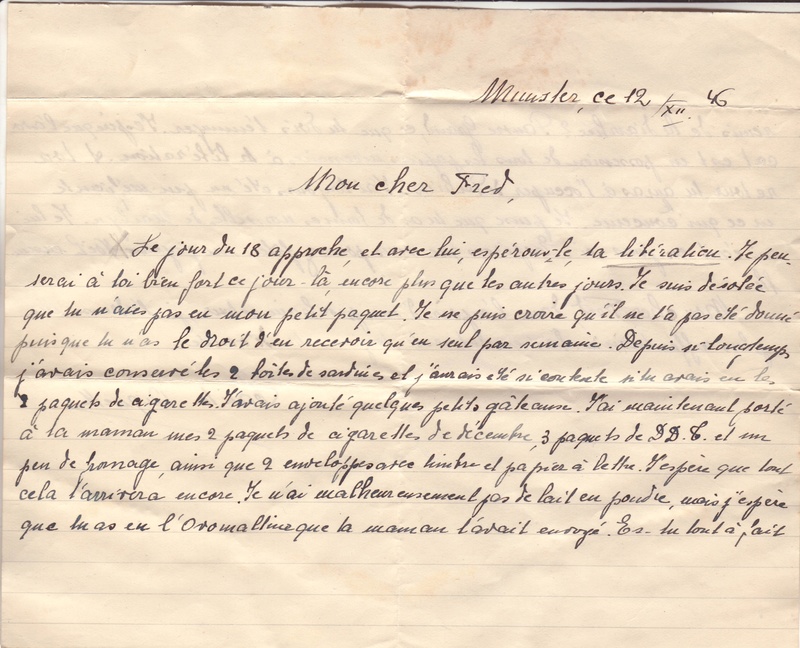 Munster, ce 12/XII. 46
Mon cher Fred,
Le jour du 18 approche, et avec lui, espérons-le, ta libération. Je pen-
serai à toi bien fort ce jour-là, encore plus que les autres jours. Je suis désolée
que tu n'aies pas eu mon petit paquet. Je ne puis croire qu'il ne t'a pas été donné
puisque tu as le droit d'en recevoir qu'un seul par semaine. Depuis si longtemps
j'avais conservé les 2 boîtes de sardines et j'aurais été si contente si tu avais eu les
2 paquets de cigarettes. J'avais ajouté quelques petits gâteaux. J'ai maintenant porté
à ta maman mes 2 paquets de cigarettes de décembre, 3 paquets de D.D.T. et un
peu de fromage, ainsi que 2 enveloppes avec timbre et papier à lettre. J'espère que tout
cela t'arrivera encore. Je n'ai malheureusement pas de lait en poudre, mais j'espère
que tu as eu l'Ovomaltine que ta maman t'avait envoyé. Es-tu tout à fait